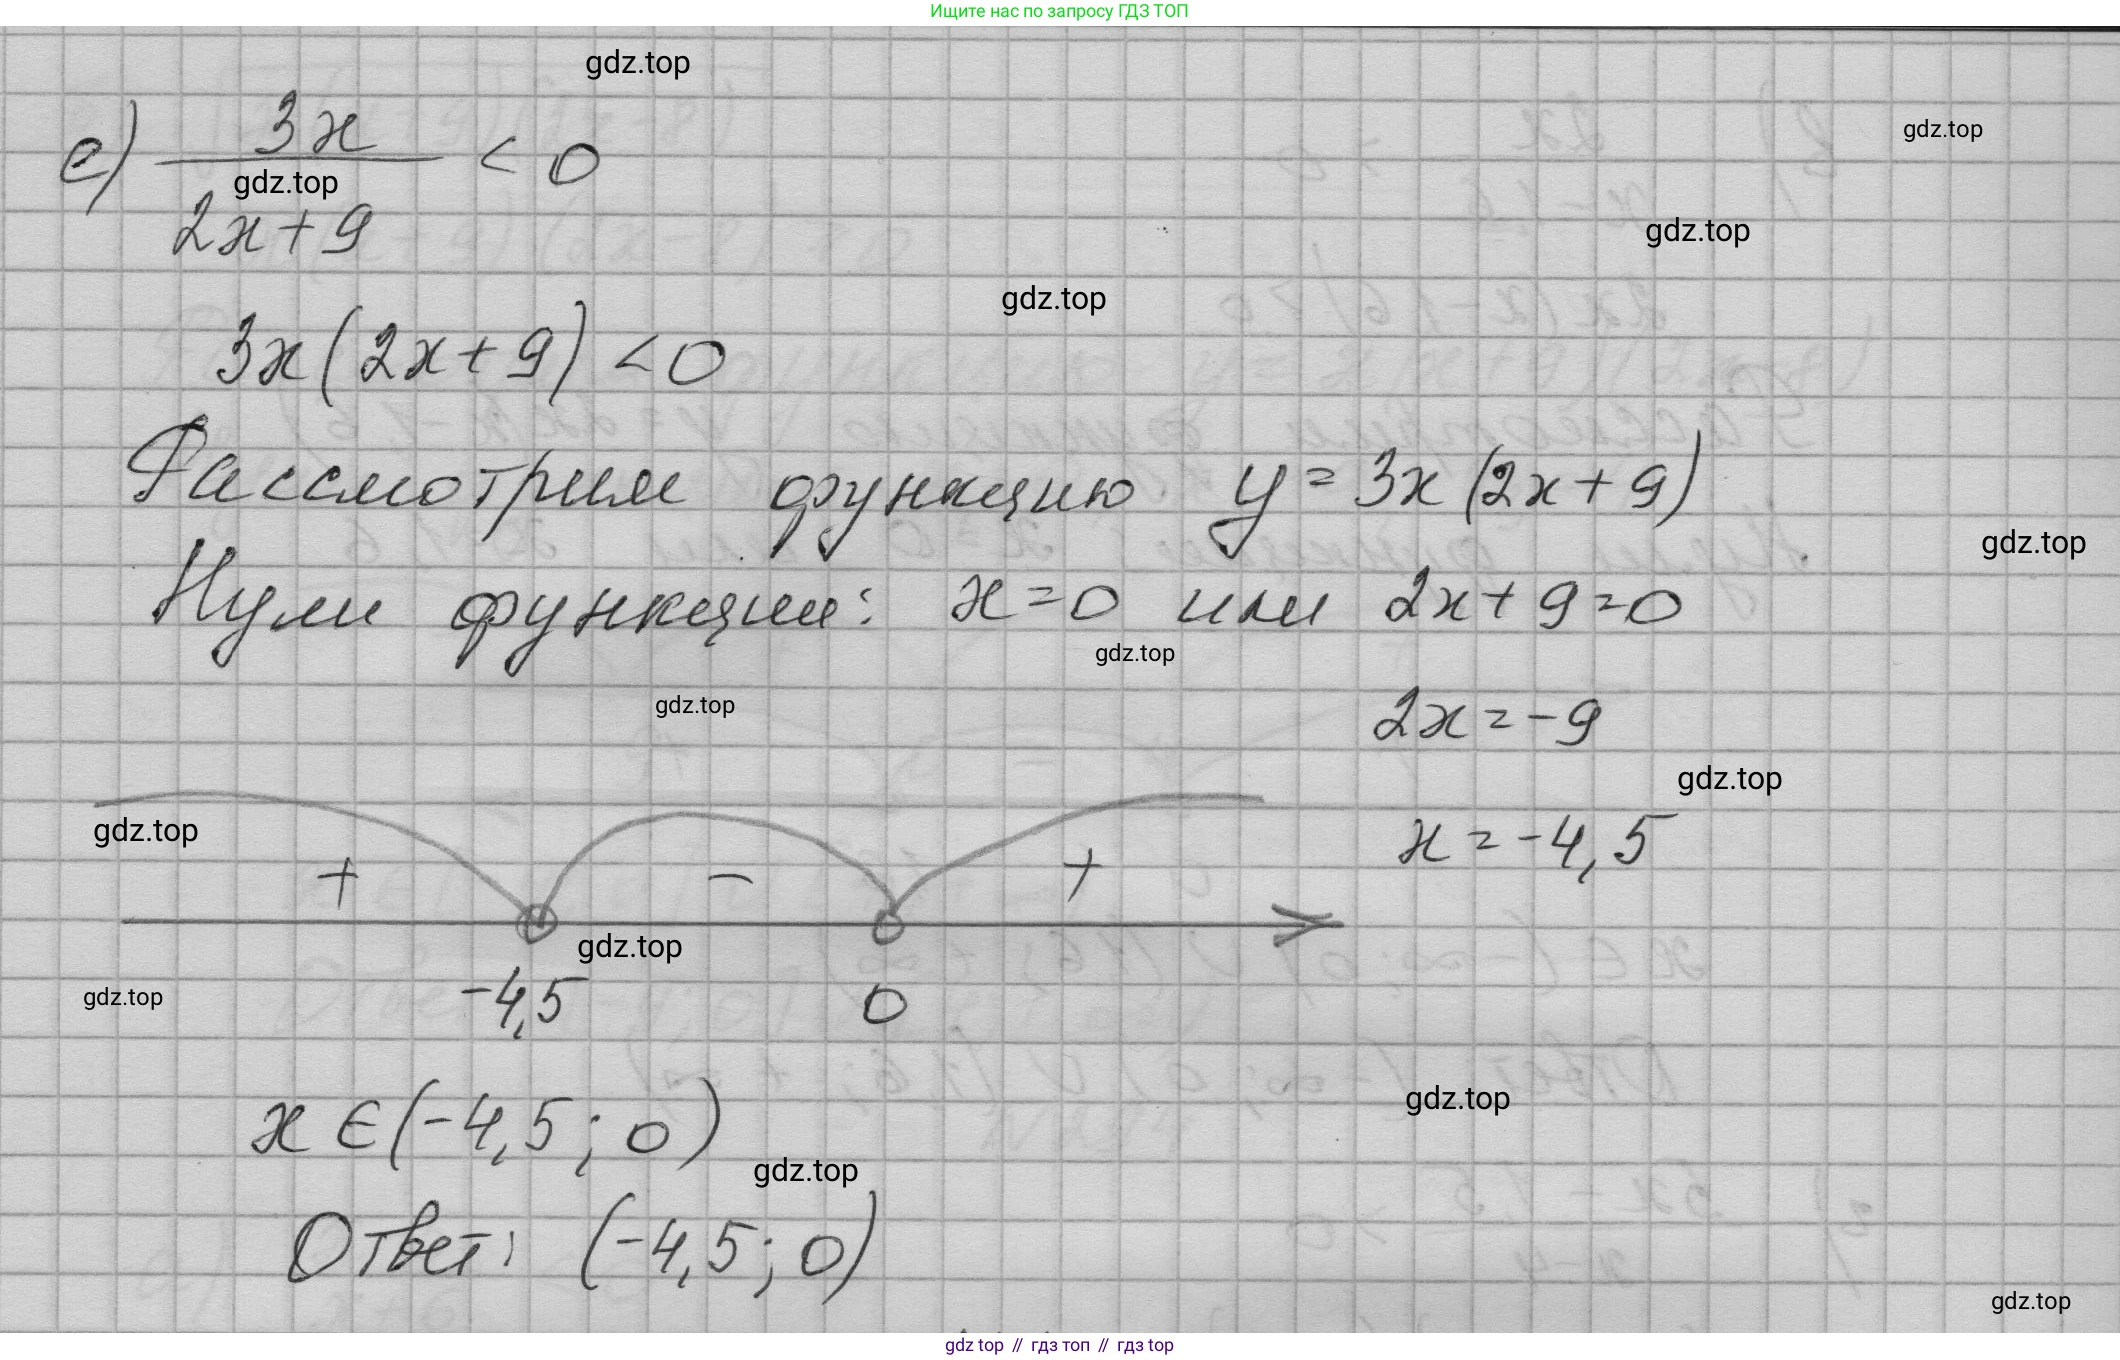 Ищите нас по запросу ГДЗ ТОП
gdz.top
е) 3x / 2x+9 < 0
gdz.top
gdz.top
gdz.top
gdz.top
3x(2x+9) <0
Рассмотрим функцию y=3x(2x+9)
gdz.top
Нули функции: x=0 или 2x+9=0
gdz.top
gdz.top
2x=-9
gdz.top
gdz.top
x=-4,5
+ - +
gdz.top
gdz.top
-4,5 0
x∈(-4,5; 0)
gdz.top
gdz.top
Ответ: (-4,5; 0)
gdz.top
gdz top // гдз топ // гдз top